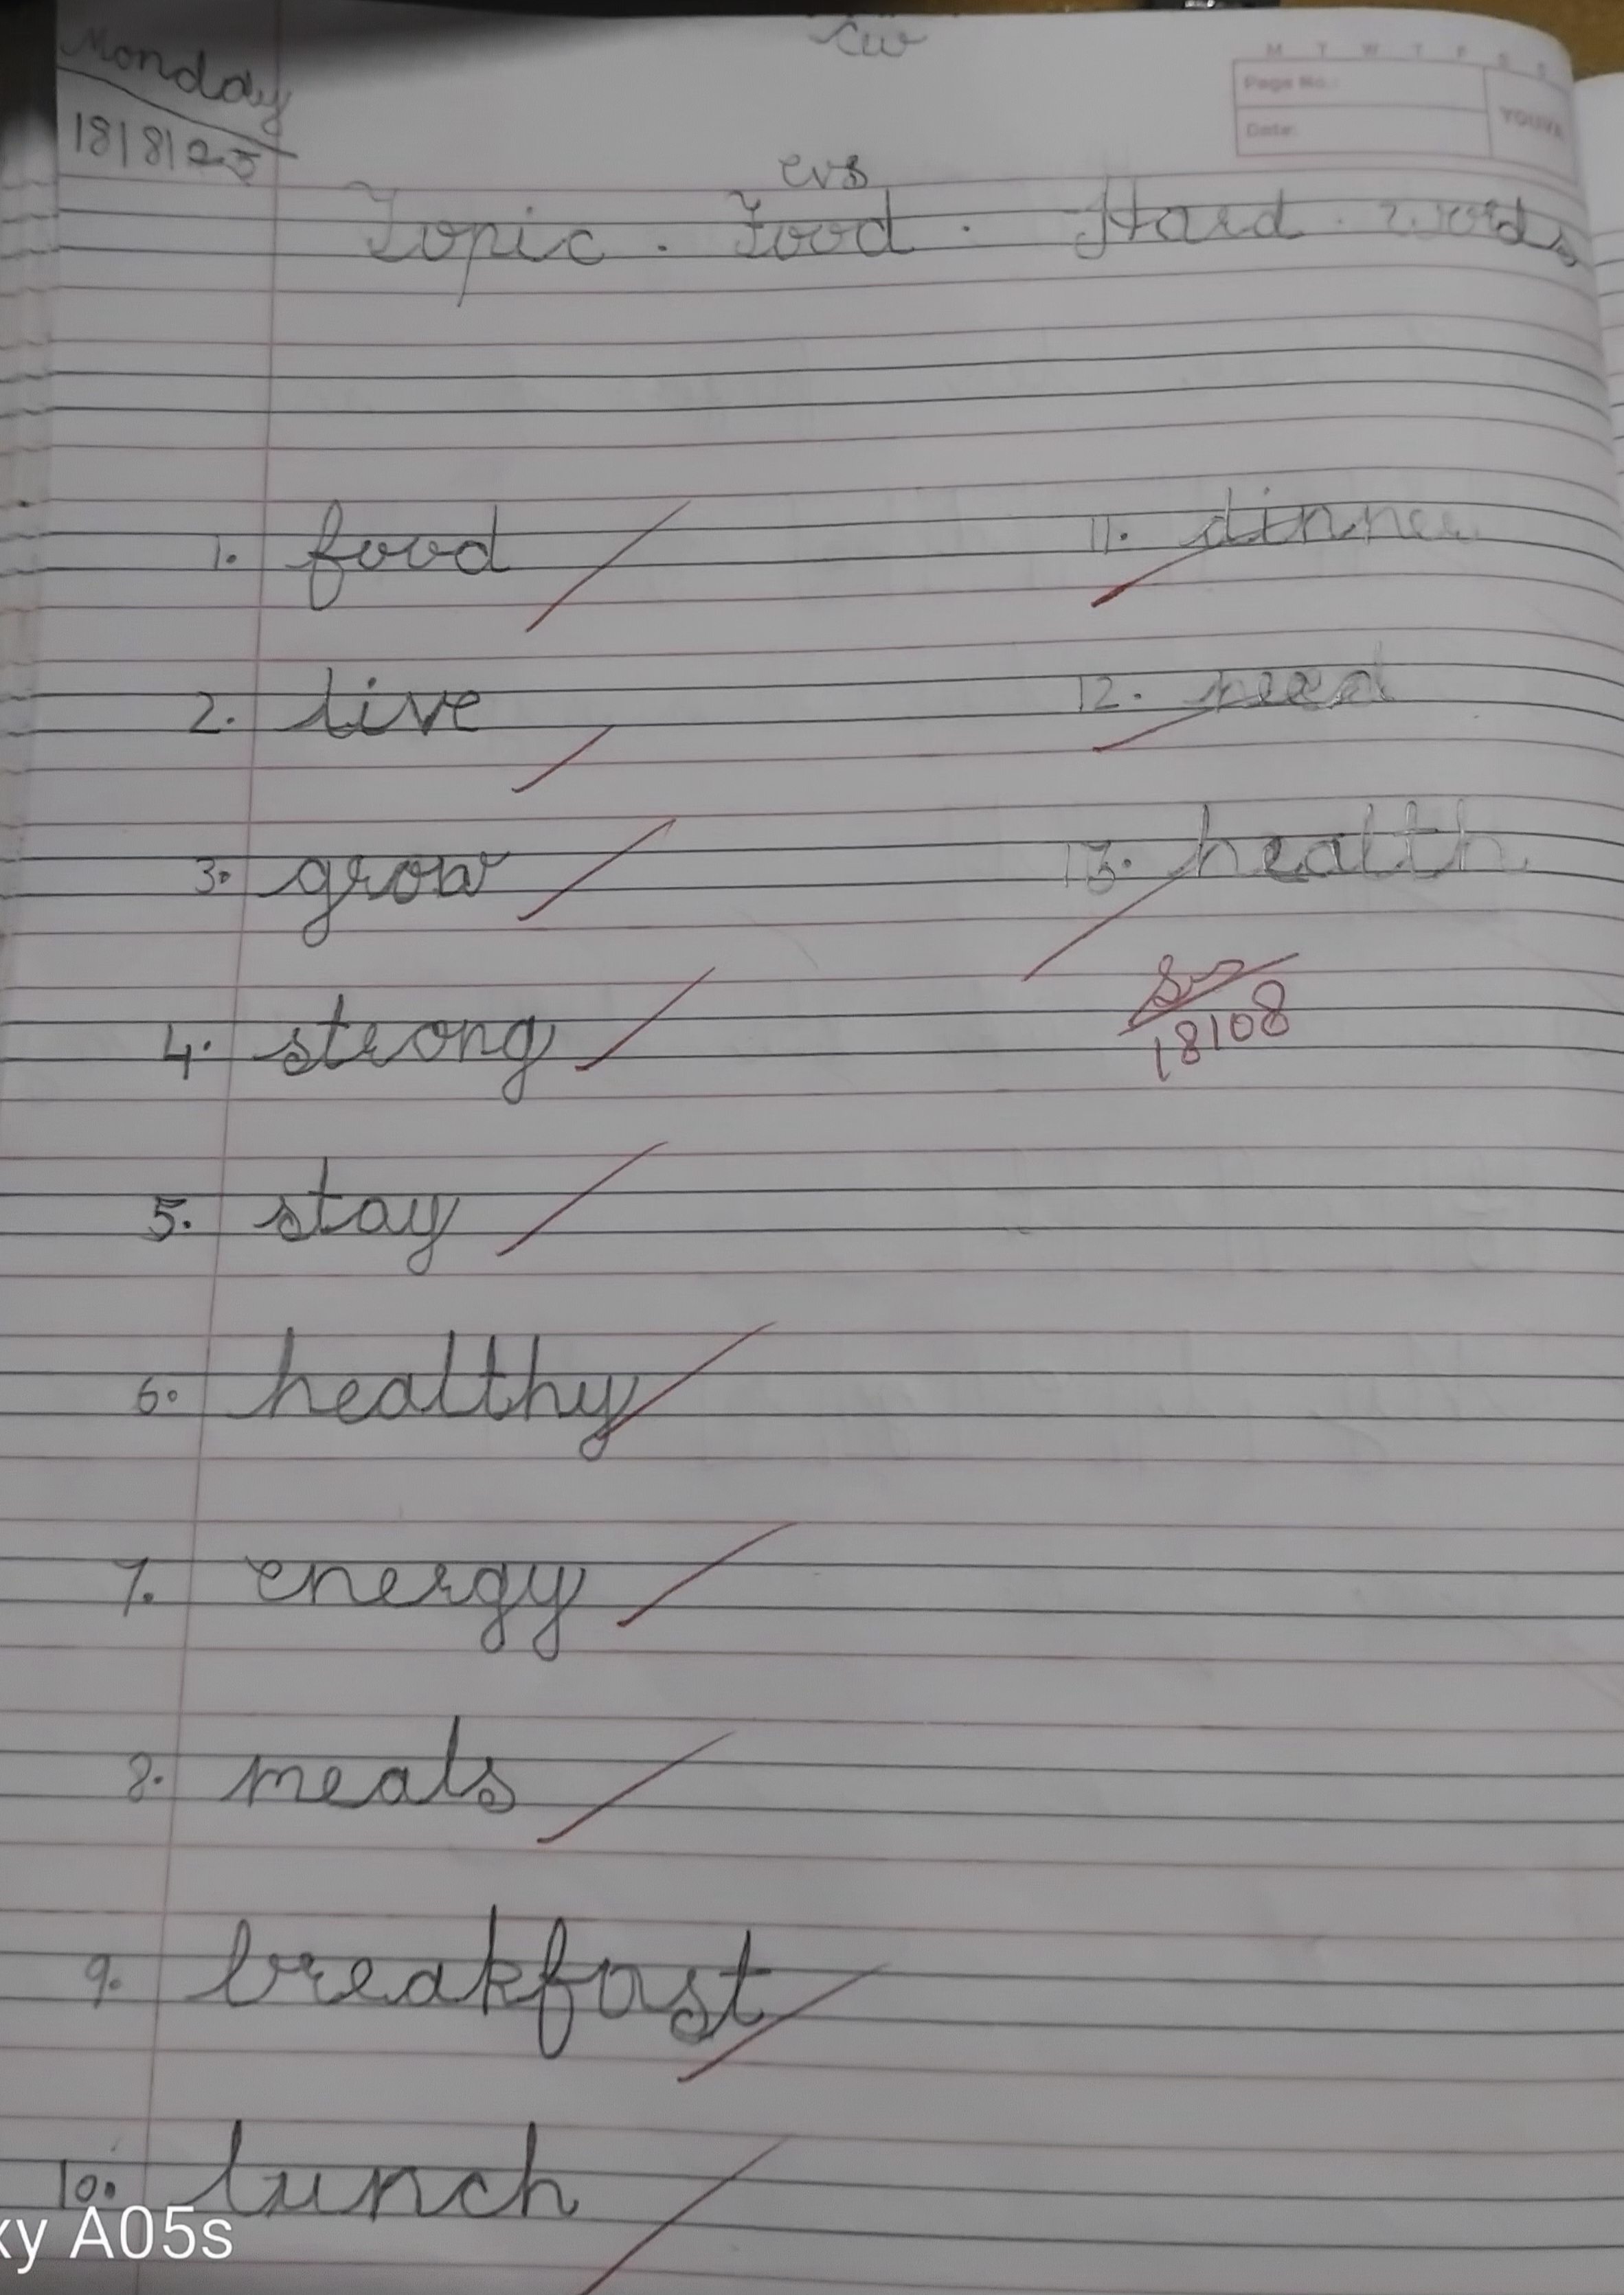 Monday
18/8/25
CW
M T W T F S S
Page No.:
Date:
YOUVA
evs
Topic . Food . Hard . words
1. food
2. live
3. grow
4. strong
5. stay
6. healthy
7. energy
8. meals
9. breakfast
10. lunch
11. dinner
12. need
13. health
18/08
xy A05s